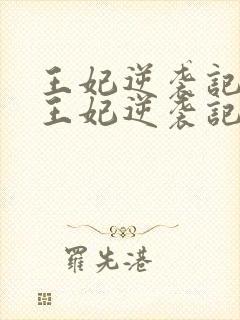 王妃逆袭記
王妃逆袭記
羅先港